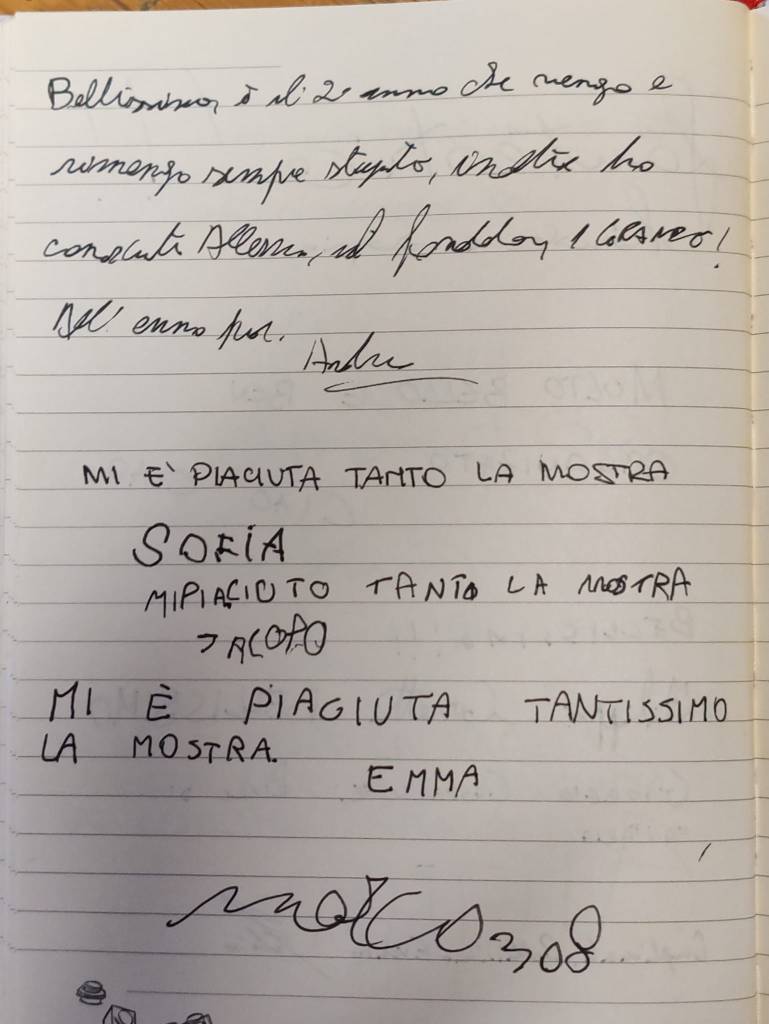 è il 2° anno che vengo e
rimango sempre stupito, inoltre ho
il 1 GRANDE!
All'anno pros.
MI E' PIACIUTA TANTO LA MOSTRA
SOFIA
MIPIACIUTO TANTO LA MOSTRA
JACOPO
MI È PIACIUTA TANTISSIMO
LA MOSTRA.
EMMA
308